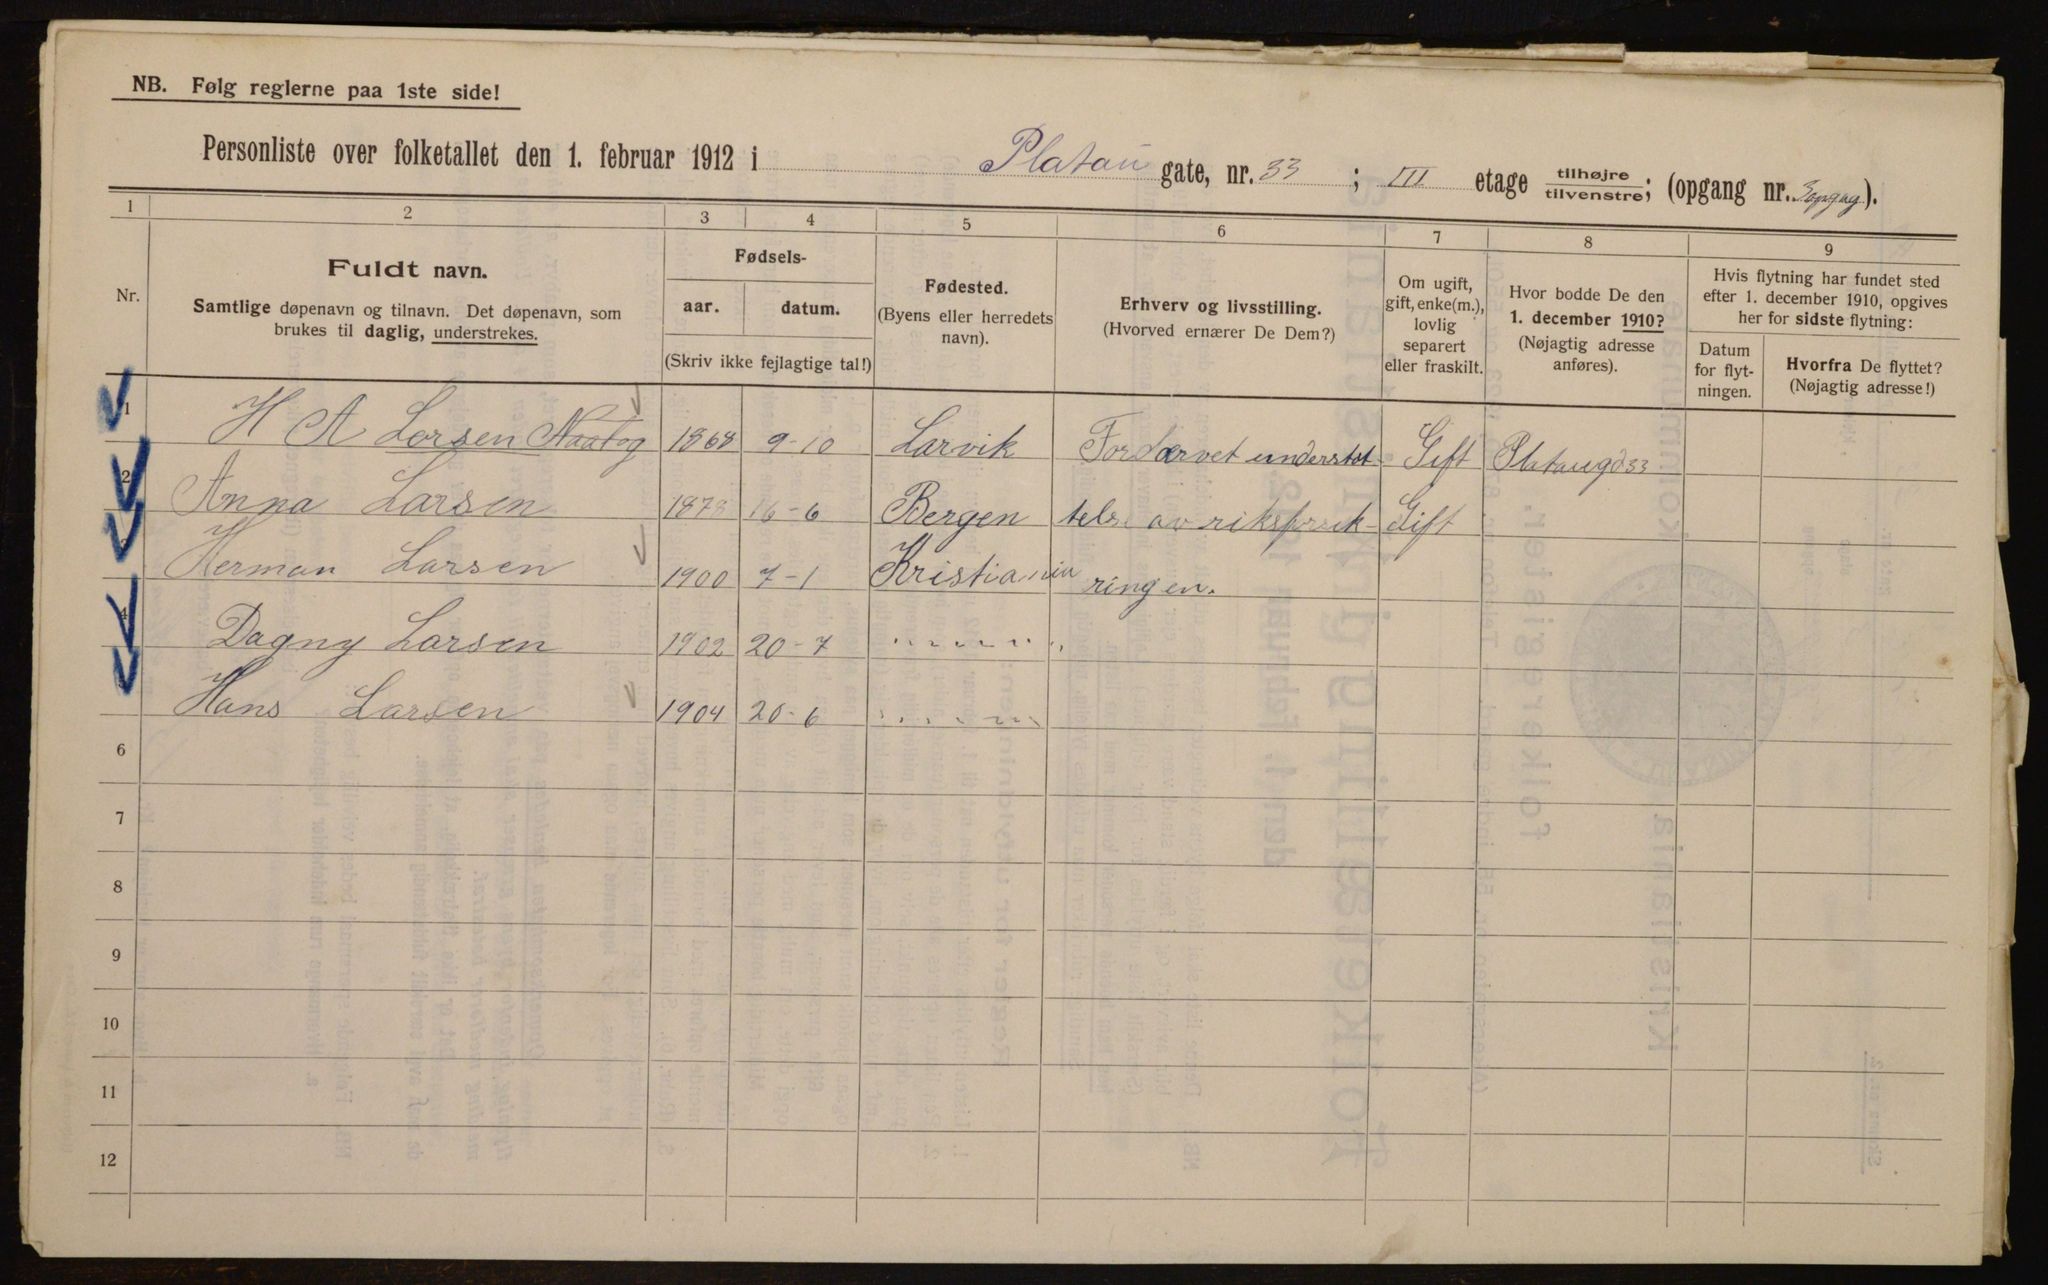 NB. Følg reglerne paa 1ste side!
Personliste over folketallet den 1. februar 1912 i Platau gate, nr. 33 ; III etage tilhøjre/tilvenstre; (opgang nr. ).
1 2 3 4 5 6 7 8 9
Nr.
Fuldt navn.
Samtlige døpenavn og tilnavn. Det døpenavn, som
brukes til daglig, understrekes.
Fødsels-
aar. datum.
(Skriv ikke fejlagtige tal!)
Fødested.
(Byens eller herredets
navn).
Erhverv og livsstilling.
(Hvorved ernærer De Dem?)
Om ugift,
gift, enke(m.),
lovlig
separert
eller fraskilt.
Hvor bodde De den
1. december 1910?
(Nøjagtig adresse
anføres).
Hvis flytning har fundet sted
efter 1. december 1910, opgives
her for sidste flytning:
Datum
for flyt-
ningen.
Hvorfra De flyttet?
(Nøjagtig adresse!)
1 H A Larsen 1868 9-10 Larvik Fordærvet understøt- Gift Plataugd 33
2 Anna Larsen 1878 16-6 Bergen telse av riksforsik- Gift
3 Herman Larsen 1900 7-1 Kristiania ringen.
4 Dagny Larsen 1902 20-7 " " " " "
5 Hans Larsen 1904 20-6 " " " " "
6
7
8
9
10
11
12